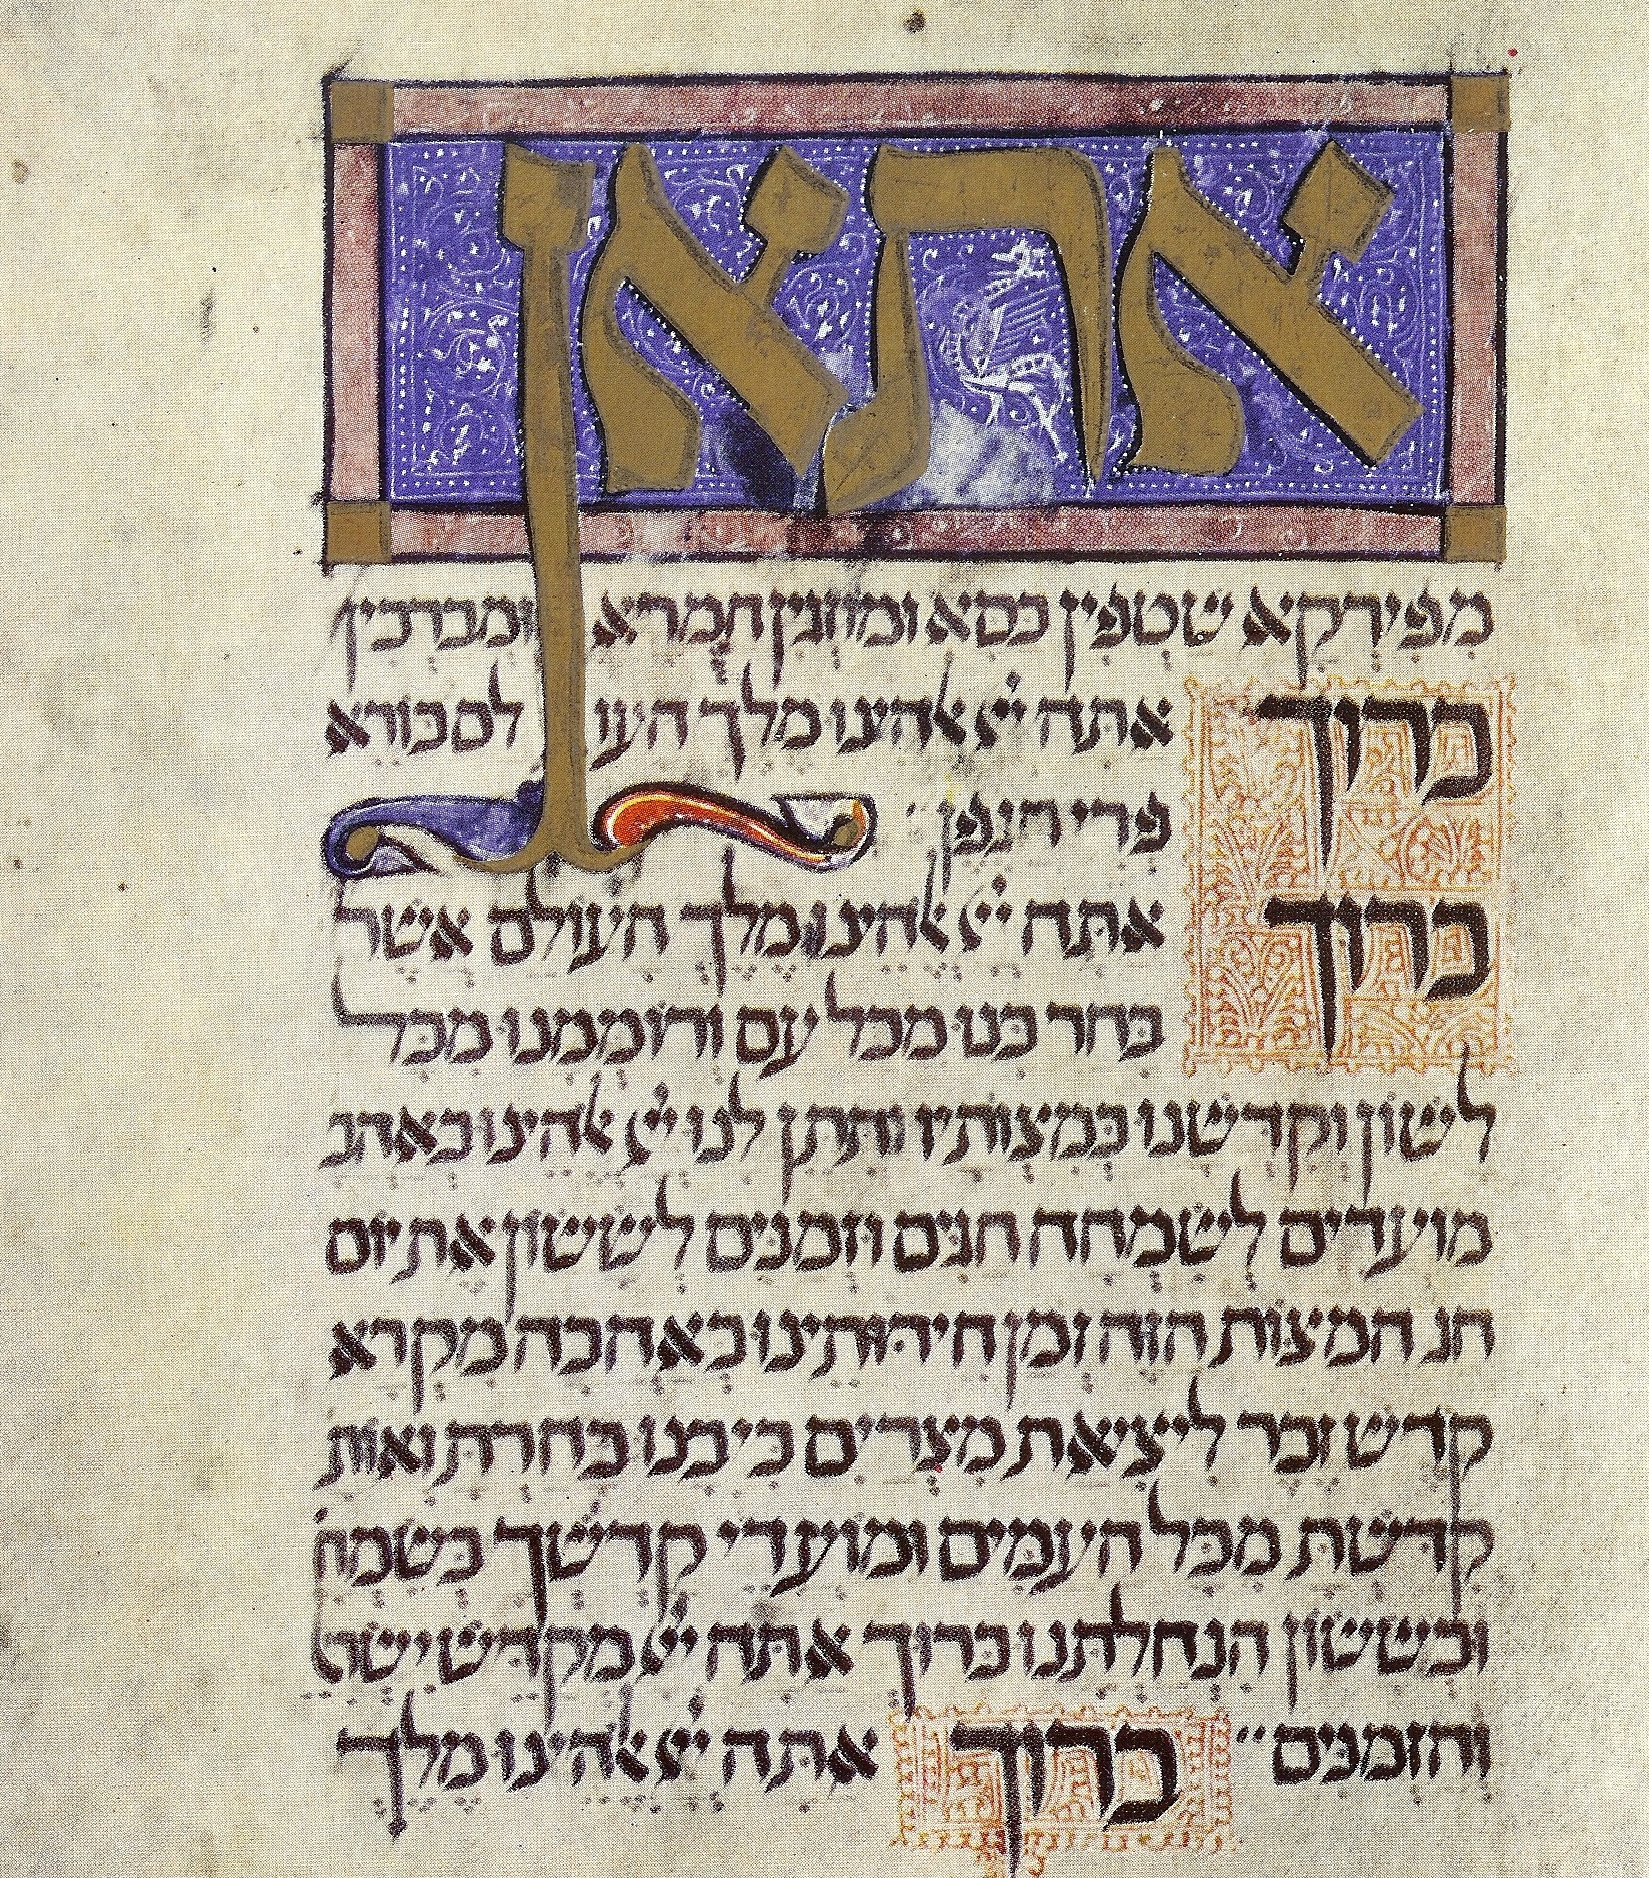 אתאן
מפירקא שטפין כסא ומוזגין חמרא ומברכין
ברוך אתה יי אלהינו מלך העולם בורא
פרי הגפן
ברוך אתה יי אלהינו מלך העולם אשר
בחר בנו מכל עם ורוממנו מכל
לשון וקדשנו במצותיו ותתן לנו יי אלהינו באהב
מועדים לשמחה חגים וזמנים לששון את יום
חג המצות הזה זמן חירותינו באהבה מקרא
קדש זכר ליציאת מצרים כי בנו בחרת ואות
קדשת מכל העמים ומועדי קדשך בשמח
ובששון הנחלתנו ברוך אתה יי מקדש ישרא
והזמנים ברוך אתה יי אלהינו מלך